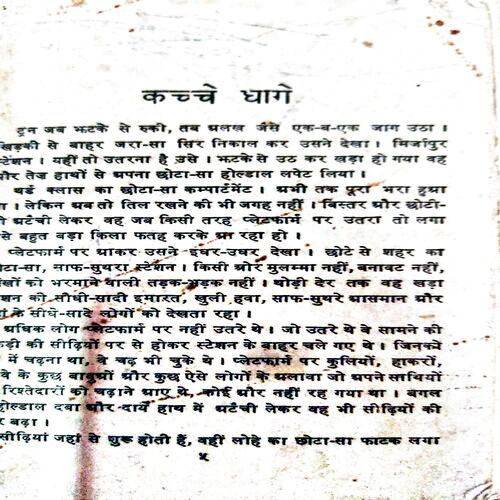 कच्चे धागे
ट्रेन जब झटके से रुकी, तब अलख जैसे एक-ब-एक जाग उठा ।
खिड़की से बाहर जरा-सा सिर निकाल कर उसने देखा । मिर्जापुर
स्टेशन । यहीं तो उतरना है उसे । झटके से उठ कर खड़ा हो गया वह
और तेज़ हाथों से अपना छोटा-सा होल्डाल लपेट लिया ।
थर्ड क्लास का छोटा-सा कम्पार्टमेंट । अभी तक पूरा भरा हुआ
। लेकिन अब तो तिल रखने की भी जगह नहीं । बिस्तर और छोटी-
अटैची लेकर वह जब किसी तरह प्लेटफार्म पर उतरा तो लगा
से बहुत बड़ा किला फतह करके आ रहा हो ।
प्लेटफार्म पर आकर उसने इधर-उधर देखा । छोटे से शहर का
छोटा-सा, साफ-सुथरा स्टेशन । किसी ओर मुलम्मा नहीं, बनावट नहीं,
आँखों को भरमाने वाली तड़क-भड़क नहीं । थोड़ी देर तक वह खड़ा
स्टेशन की सीधी-सादी इमारत, खुली हवा, साफ-सुथरे आसमान और
के सीधे-सादे लोगों को देखता रहा ।
अधिक लोग प्लेटफार्म पर नहीं उतरे थे । जो उतरे थे वे सामने की
लकड़ी की सीढ़ियों पर से होकर स्टेशन के बाहर चले गए थे । जिनको
में चढ़ना था, वे चढ़ भी चुके थे । प्लेटफ़ार्म पर कुलियों, हाकरों,
वे के कुछ बाबुओं और कुछ ऐसे लोगों के अलावा जो अपने साथियों
रिश्तेदारों को चढ़ाने आए थे, कोई और नहीं रह गया था । बगल
होल्डाल दबा और दायें हाथ में अटैची लेकर वह भी सीढ़ियों की
र बढ़ा ।
सीढ़ियां जहां से शुरू होती हैं, वहीं लोहे का छोटा-सा फाटक लगा
५